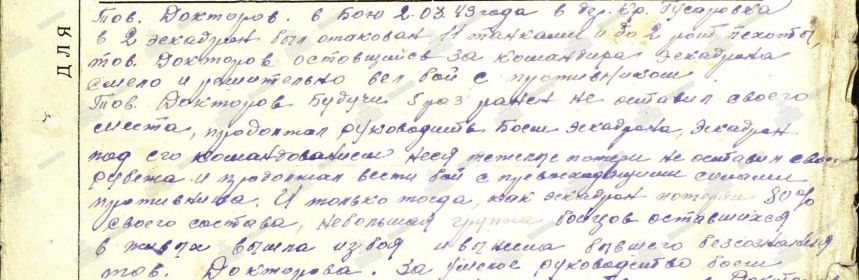 Тов. Докторов. в бою 2.03.43 года в дер. Кр. Гусаровка
в 2 эскадрон был атакован 11 танками и до 2 рот пехоты,
тов. Докторов оставшийсь за командира эскадрона
смело и решительно вел бой с противником.
Тов. Докторов будучи раз ранен не оставил своего
места, продолжал руководить боем эскадрона, эскадрон
под его командованием неся тежелые потери не оставил свои
рубежа и продолжал вести бой с превосходящими силами
противника. И только тогда, как эскадрон потерял 80%
своего состава, небольшая группа бойцов оставшихся
в живых вышла из боя и вынесла бывшего без сознания
тов. Докторова. За умелое руководство боем
ДЛЯ